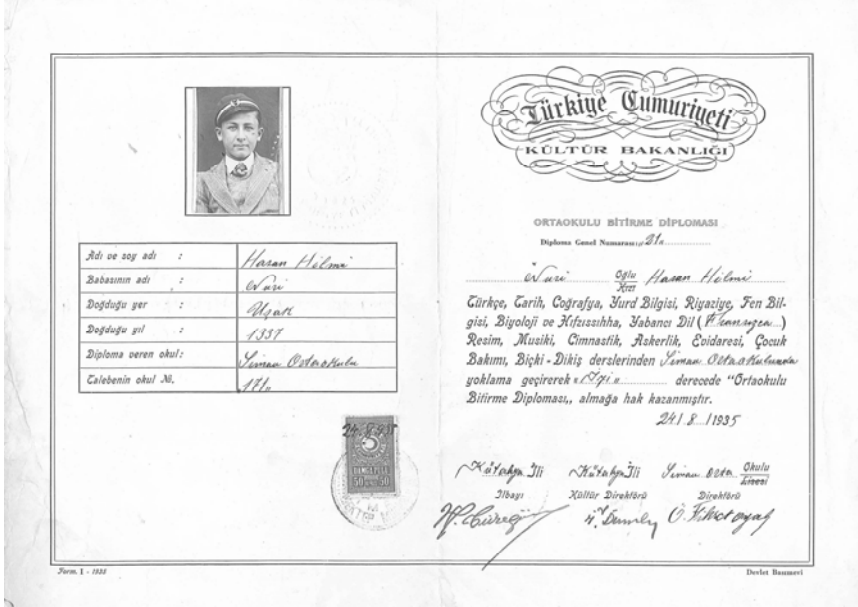 Adı ve soy adı : Hasan Hilmi
Babasının adı : Nuri
Doğduğu yer : Uşak
Doğduğu yıl : 1337
Diploma veren okul: Simav Ortaokulu
Talebenin okul №. 171
24.8.935
DAMGA PULU
50 50
Form. I - 1935
Türkiye Cumuriyeti
KÜLTÜR BAKANLIĞI
ORTAOKULU BİTİRME DİPLOMASI
Diploma Genel Numarası: 21
Nuri Oğlu Kızı Hasan Hilmi
Türkçe, Tarih, Coğrafya, Yurd Bilgisi, Riyaziye, Fen Bil-
gisi, Biyoloji ve Hıfzıssıhha, Yabancı Dil (Fransızca)
Resim, Musiki, Cimnastik, Askerlik, Evidaresi, Çocuk
Bakımı, Biçki-Dikiş derslerinden Simav Ortaokulunda
yoklama geçirerek «İyi» derecede "Ortaokulu
Bitirme Diploması,, almağa hak kazanmıştır.
24/8/1935
Kütahya İli Kütahya İli Simav Orta Okulu Lisesi
İlbayı Kültür Direktörü Direktörü
Devlet Basımevi